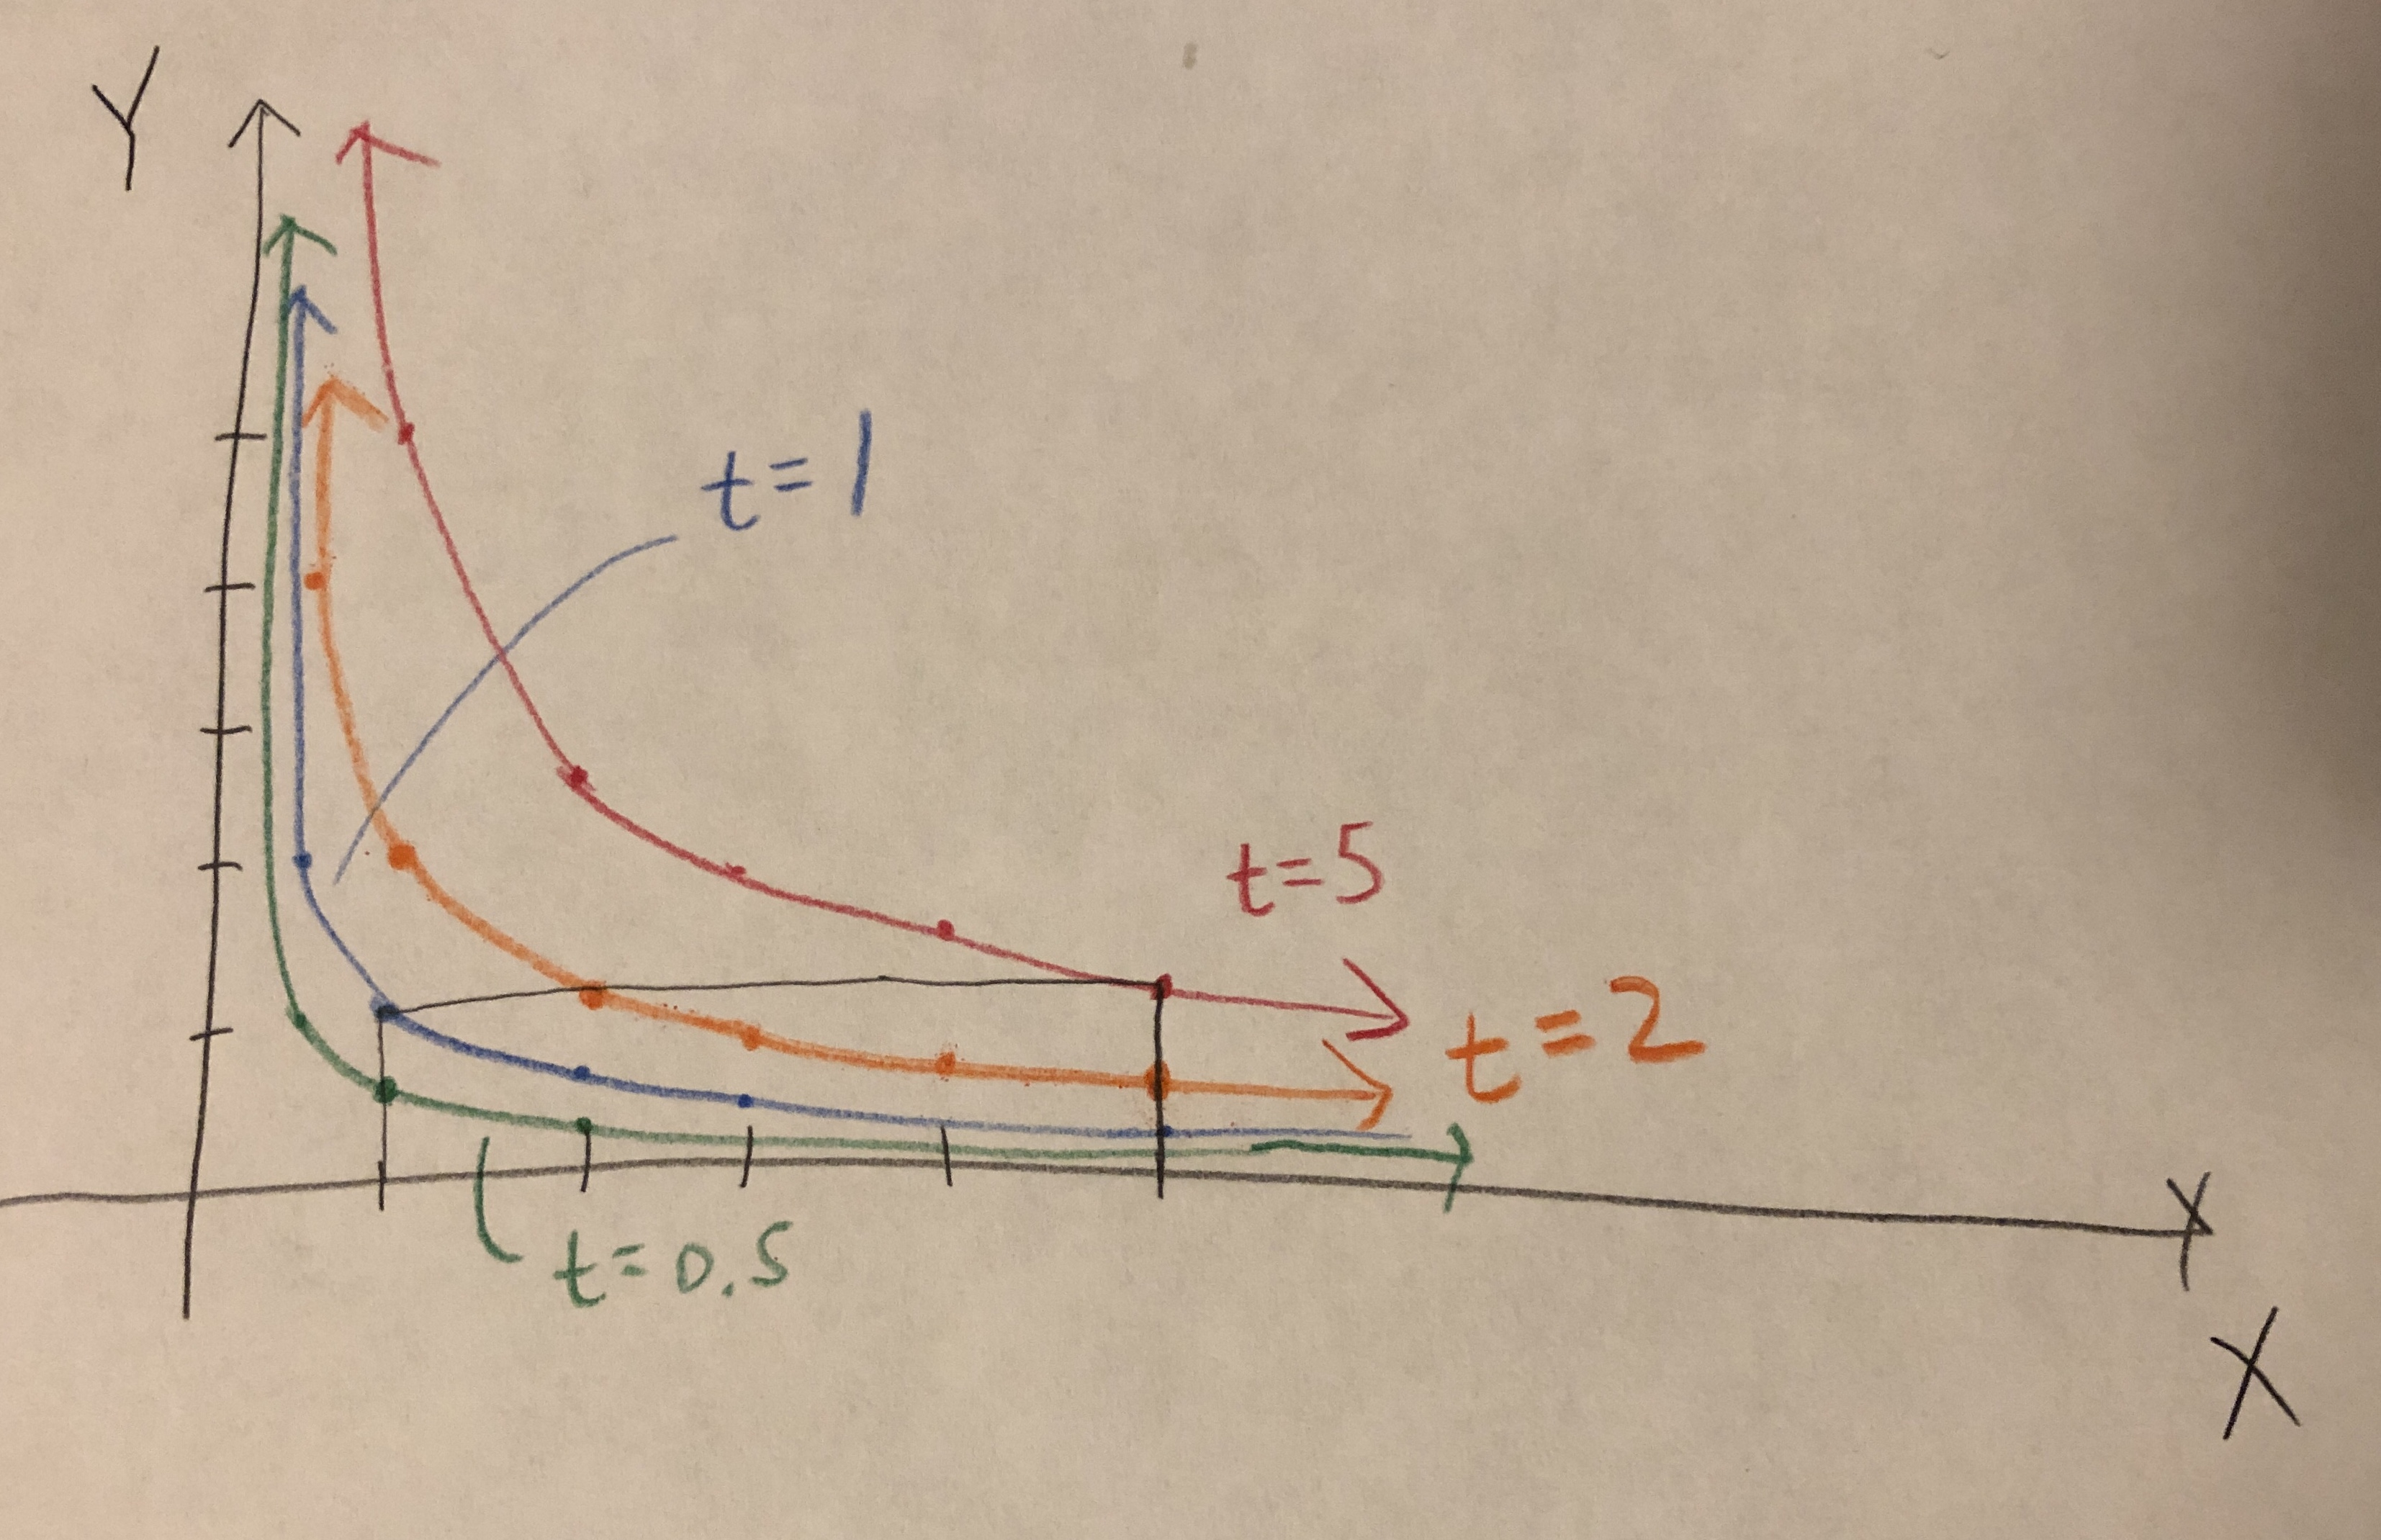 Y
t=1
t=5
t=2
t=0.5
X